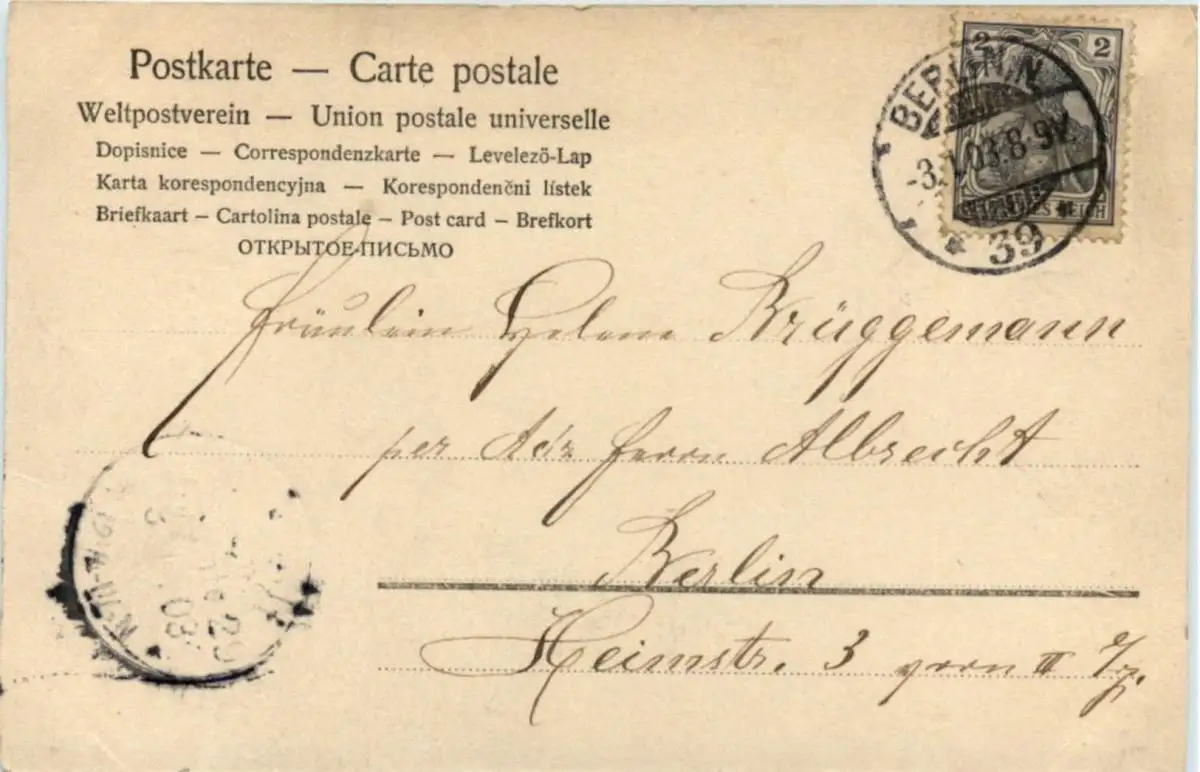 Postkarte — Carte postale
Weltpostverein — Union postale universelle
Dopisnice — Correspondenzkarte — Levelező-Lap
Karta korespondencyjna — Korespondenčni lístek
Briefkaart — Cartolina postale — Post card — Brefkort
ОТКРЫТОЕ ПИСЬМО
2 2
REICH
BERLIN, N.
-3. 03. 8-9V.
* 39 *
Fräulein Helene Brüggemann
per Adr Herrn Albrecht
Berlin
Heimstr. 3 vorn III
03